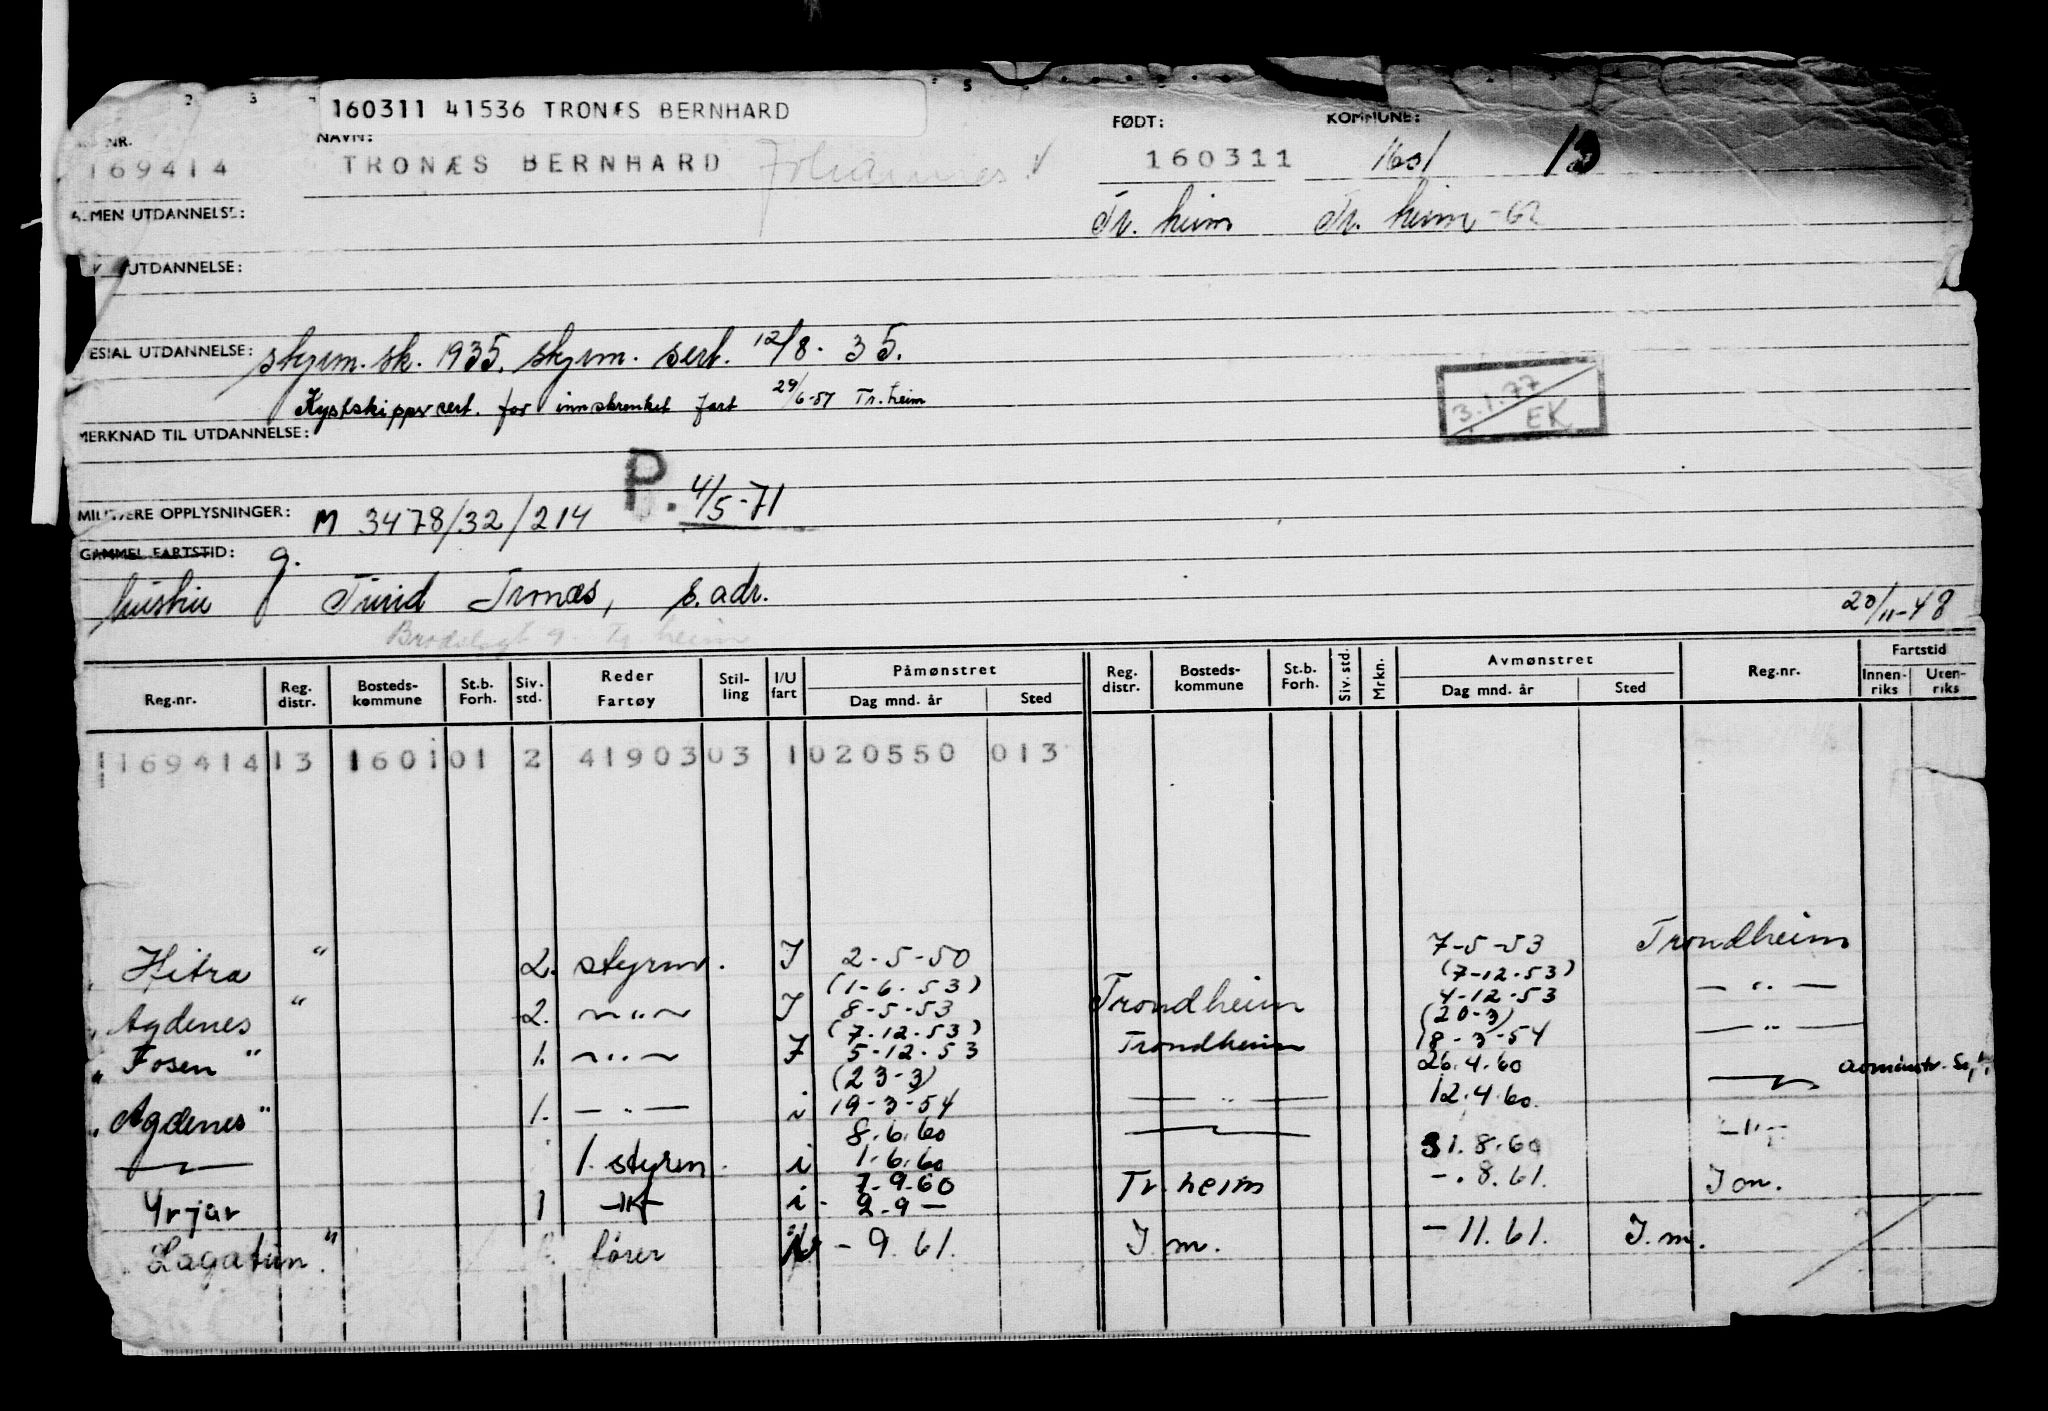 160311 41536 TRONÆS BERNHARD
NR. NAVN: FØDT: KOMMUNE:
169414 TRONÆS BERNHARD Johannes 160311 1601 13
ALMEN UTDANNELSE: Tr. heim Tr. heim -62
UTDANNELSE:
ESIAL UTDANNELSE: styrm. sk. 1935. skjrm. sert. 12/8. 35.
Kystskipper sert. for innskrenket fart 29/6-51 Tr.heim
3.1.77 EK
MERKNAD TIL UTDANNELSE:
MILITÆRE OPPLYSNINGER: M 3478/32/214 P. 4/5-71
GAMMEL FARTSTID: g.
hustru Turid Tronæs, s. adr. 20/11-48
Tr. heim
Reg.nr. Reg. distr. Bosteds- kommune St.b. Forh. Siv. std. Reder Fartøy Stil- ling I/U fart Påmønstret Dag mnd. år Sted Reg. distr. Bosteds- kommune St.b. Forh. Siv. std. Mrkn. Avmønstret Dag mnd. år Sted Reg.nr. Fartstid Innen- riks Uten- riks
169414 13 1601 01 2 41903 03 1 020550 013
Hitra " 2. styrm. I 2-5-50 7-5-53 Trondheim
(1-6.53) (7-12.53)
Agdenes " 2. — " — I 8-5-53 Trondheim 4-12-53 — " —
(7.12.53) (20-3)
" Fosen " 1. — " — I 5-12.53 Trondheim 18-3-54 — " —
(23-3) 26.4.60
" Agdenes " 1. — " — i 19-3-54 — " — 12.4.60
8.6.60
1. styrm. i 1.6.60 31.8.60 — " —
7.9.60
Yrjar 1 i - 2-9 — Tr.heim -.8.61. I on.
Lagatun " fører - 9.61. I. m. - 11.61. I.m.